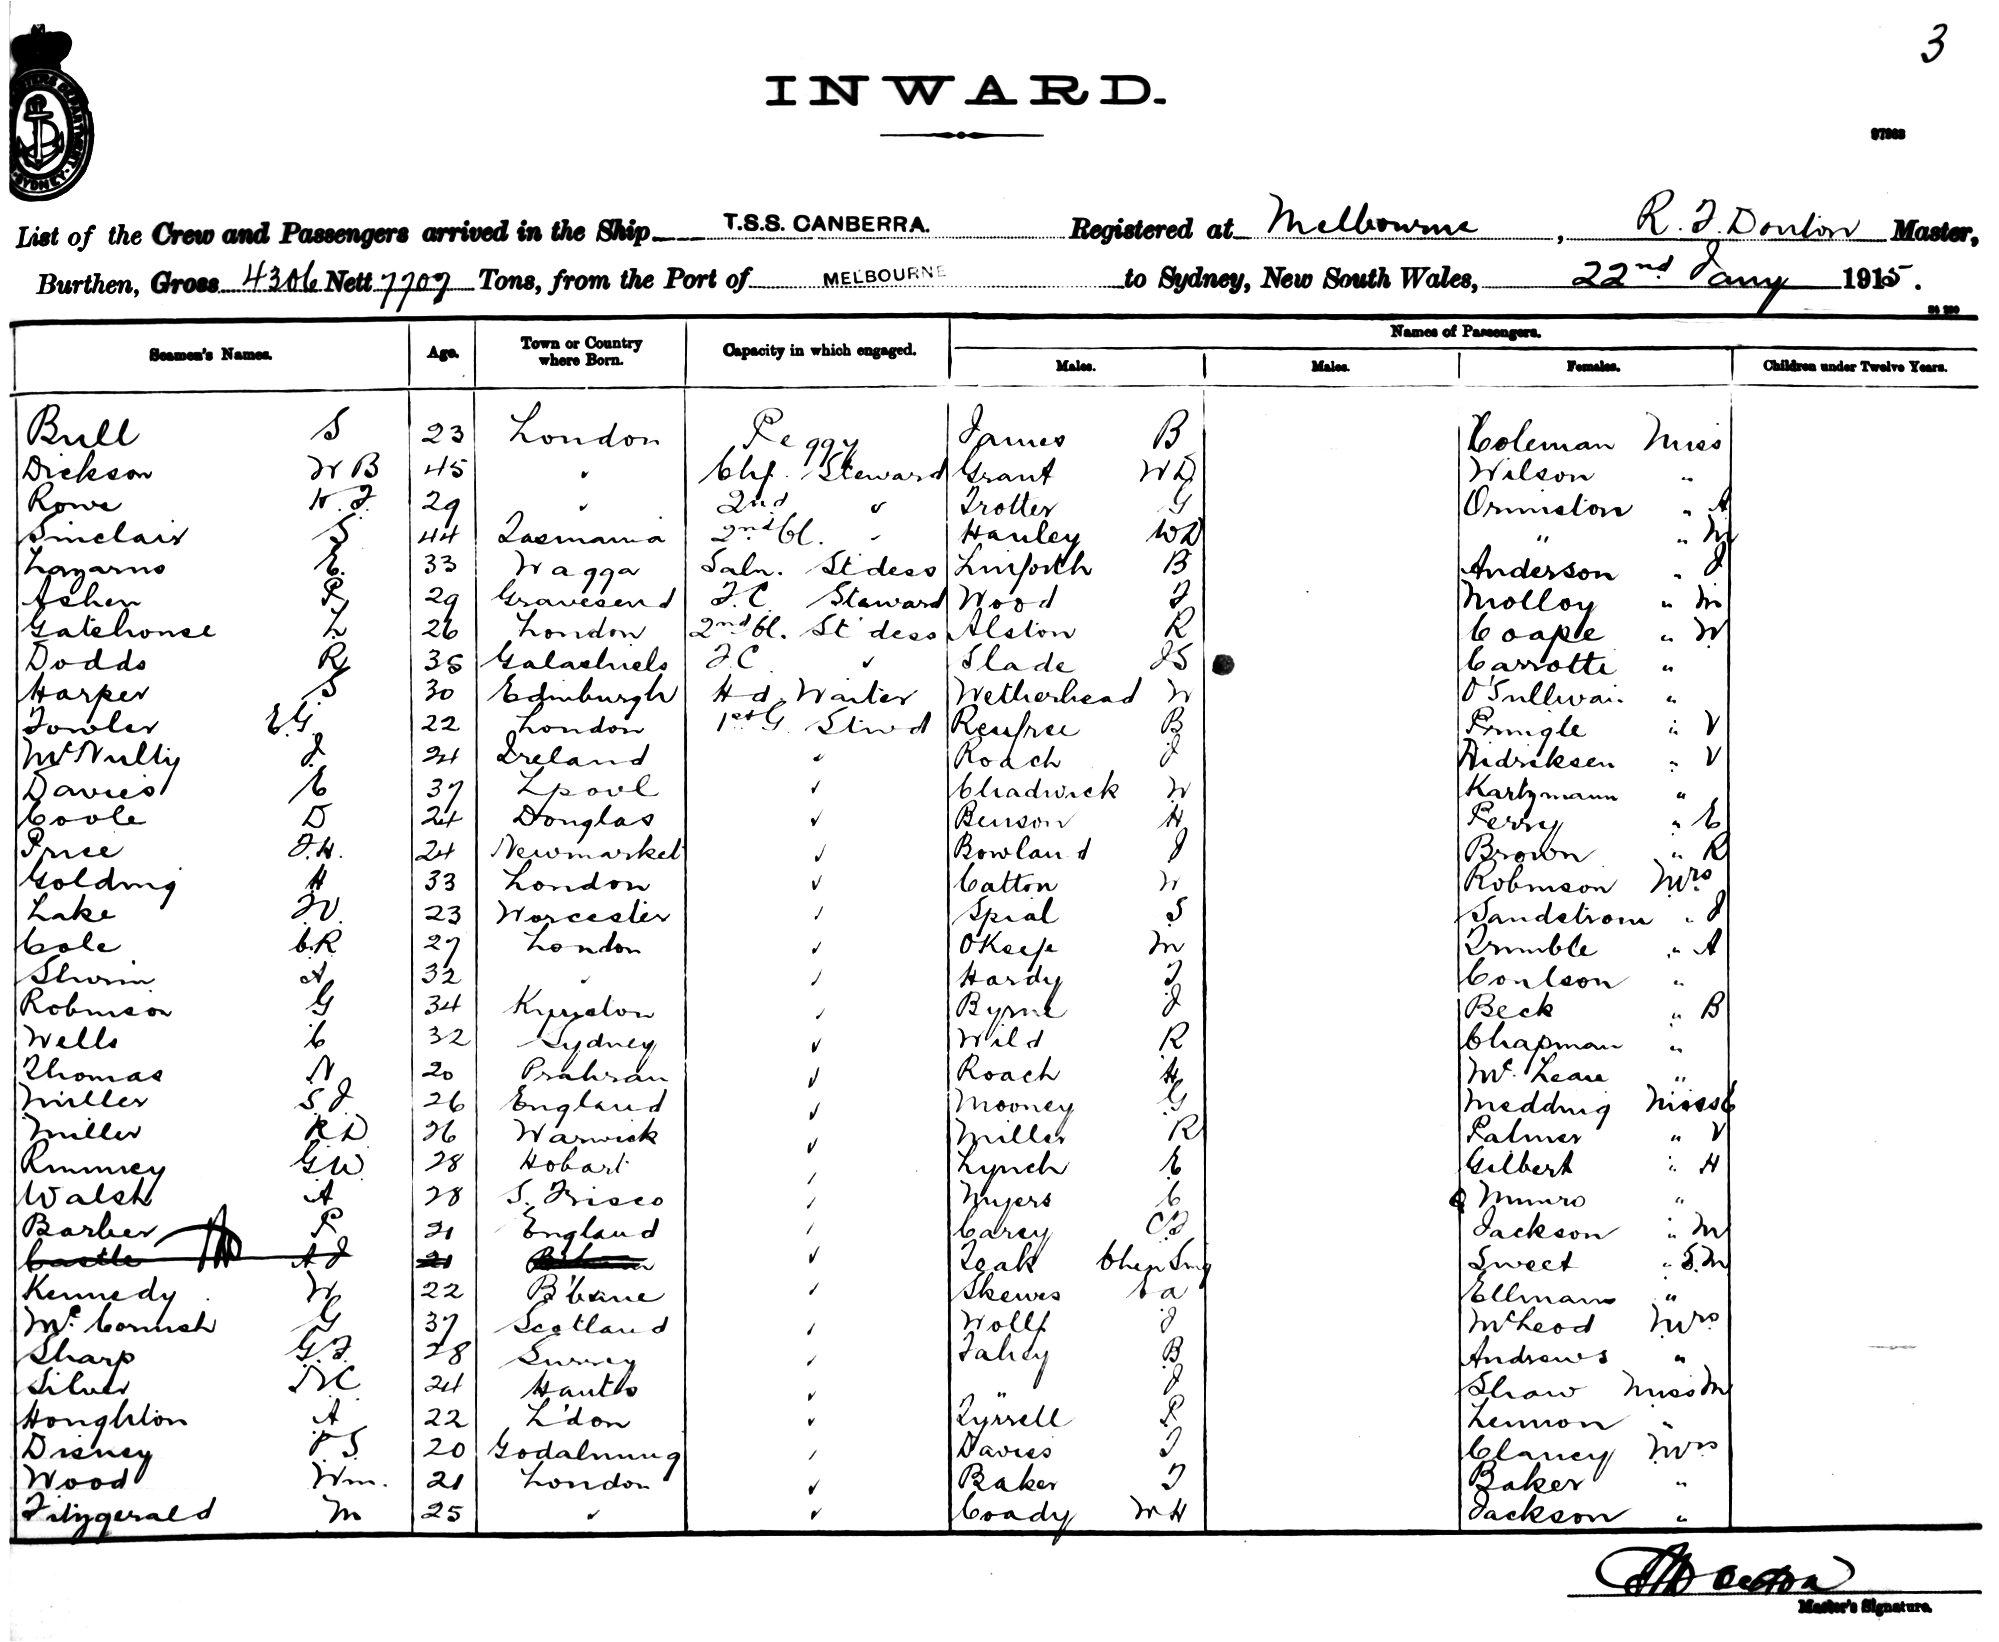 3
INWARD.
97963
List of the Crew and Passengers arrived in the Ship T.S.S. CANBERRA. Registered at Melbourne, R. J. Donlon Master,
Burthen, Gross 4306 Nett 7707 Tons, from the Port of MELBOURNE to Sydney, New South Wales, 22nd Jany 1915.
Names of Passengers.
Seamen's Names. Age. Town or Country where Born. Capacity in which engaged. Males. Males. Females. Children under Twelve Years.
Bull S 23 London Peggy James B Coleman Miss
Dickson W B 45 " Chf. Steward Grant W D Wilson "
Rowe W. J. 29 " 2nd " Trotter G Ormiston " A
Sinclair S 44 Tasmania 2nd Cl. " Hanley W D " " M
Lazarus E. 33 Wagga Saln. St'dess Linforth B Anderson " J
Ashen P 29 Gravesend F.C. Steward Wood J Molloy " M
Gatehouse L 26 London 2nd Cl. St'dess Alston R Coape " W
Dodds R 35 Galashiels F.C. " Slade J S Carrotte "
Harper S 30 Edinburgh Hd. Waiter Wetherhead W O'Sullivan "
Fowler E.G. 22 London 1st G Stwd Renfree B Pringle " V
McNulty J 24 Ireland " Roach J Hidriksen " V
Davies E 37 L'pool " Chadwick W Kartzmann "
Coole D 24 Douglas " Benson H Perry " E
Price J.H. 24 Newmarket " Bowland J Brown " R
Golding H 33 London " Catton W Robinson Mrs
Lake J W. 23 Worcester " Spial S Sandstrom " J
Cole C.R 27 London " OKeefe M Trimble " A
A 32 " " Hardy J Coulson "
Robinson G 34 Kyneton " Byrne J Beck " B
Wells C 32 Sydney " Wild R Chapman "
Thomas N 20 Prahran " Roach H McLean "
Miller S. J. 26 England " Mooney G Medding Miss E
Miller R D 26 Warwick " Miller R Palmer " V
Rumney G W 28 Hobart " Lynch E Gilbert " H
Walsh A 28 S. Frisco " Myers C Munro "
Barber P 21 England " Carey C J Jackson " M
Castle A J 21 " Teak Chen Sing Sweet " S.M
Kennedy W 22 B'bane " Skewes Ca Ellmans "
McCornish G 37 Scotland " Wolff J McLeod Mrs
Sharp G.J. 28 Surrey " Fahey B Andrews "
Silver C 24 Hants " " J Shaw Miss M
Houghton A 22 L'don " Tyrrell P Lennon "
Disney P S 20 Godalming " Davies J Clancy Mrs
Wood Wm. 21 London " Baker J Baker "
Fitzgerald M 25 " " Coady M H Jackson "
Master's Signature.